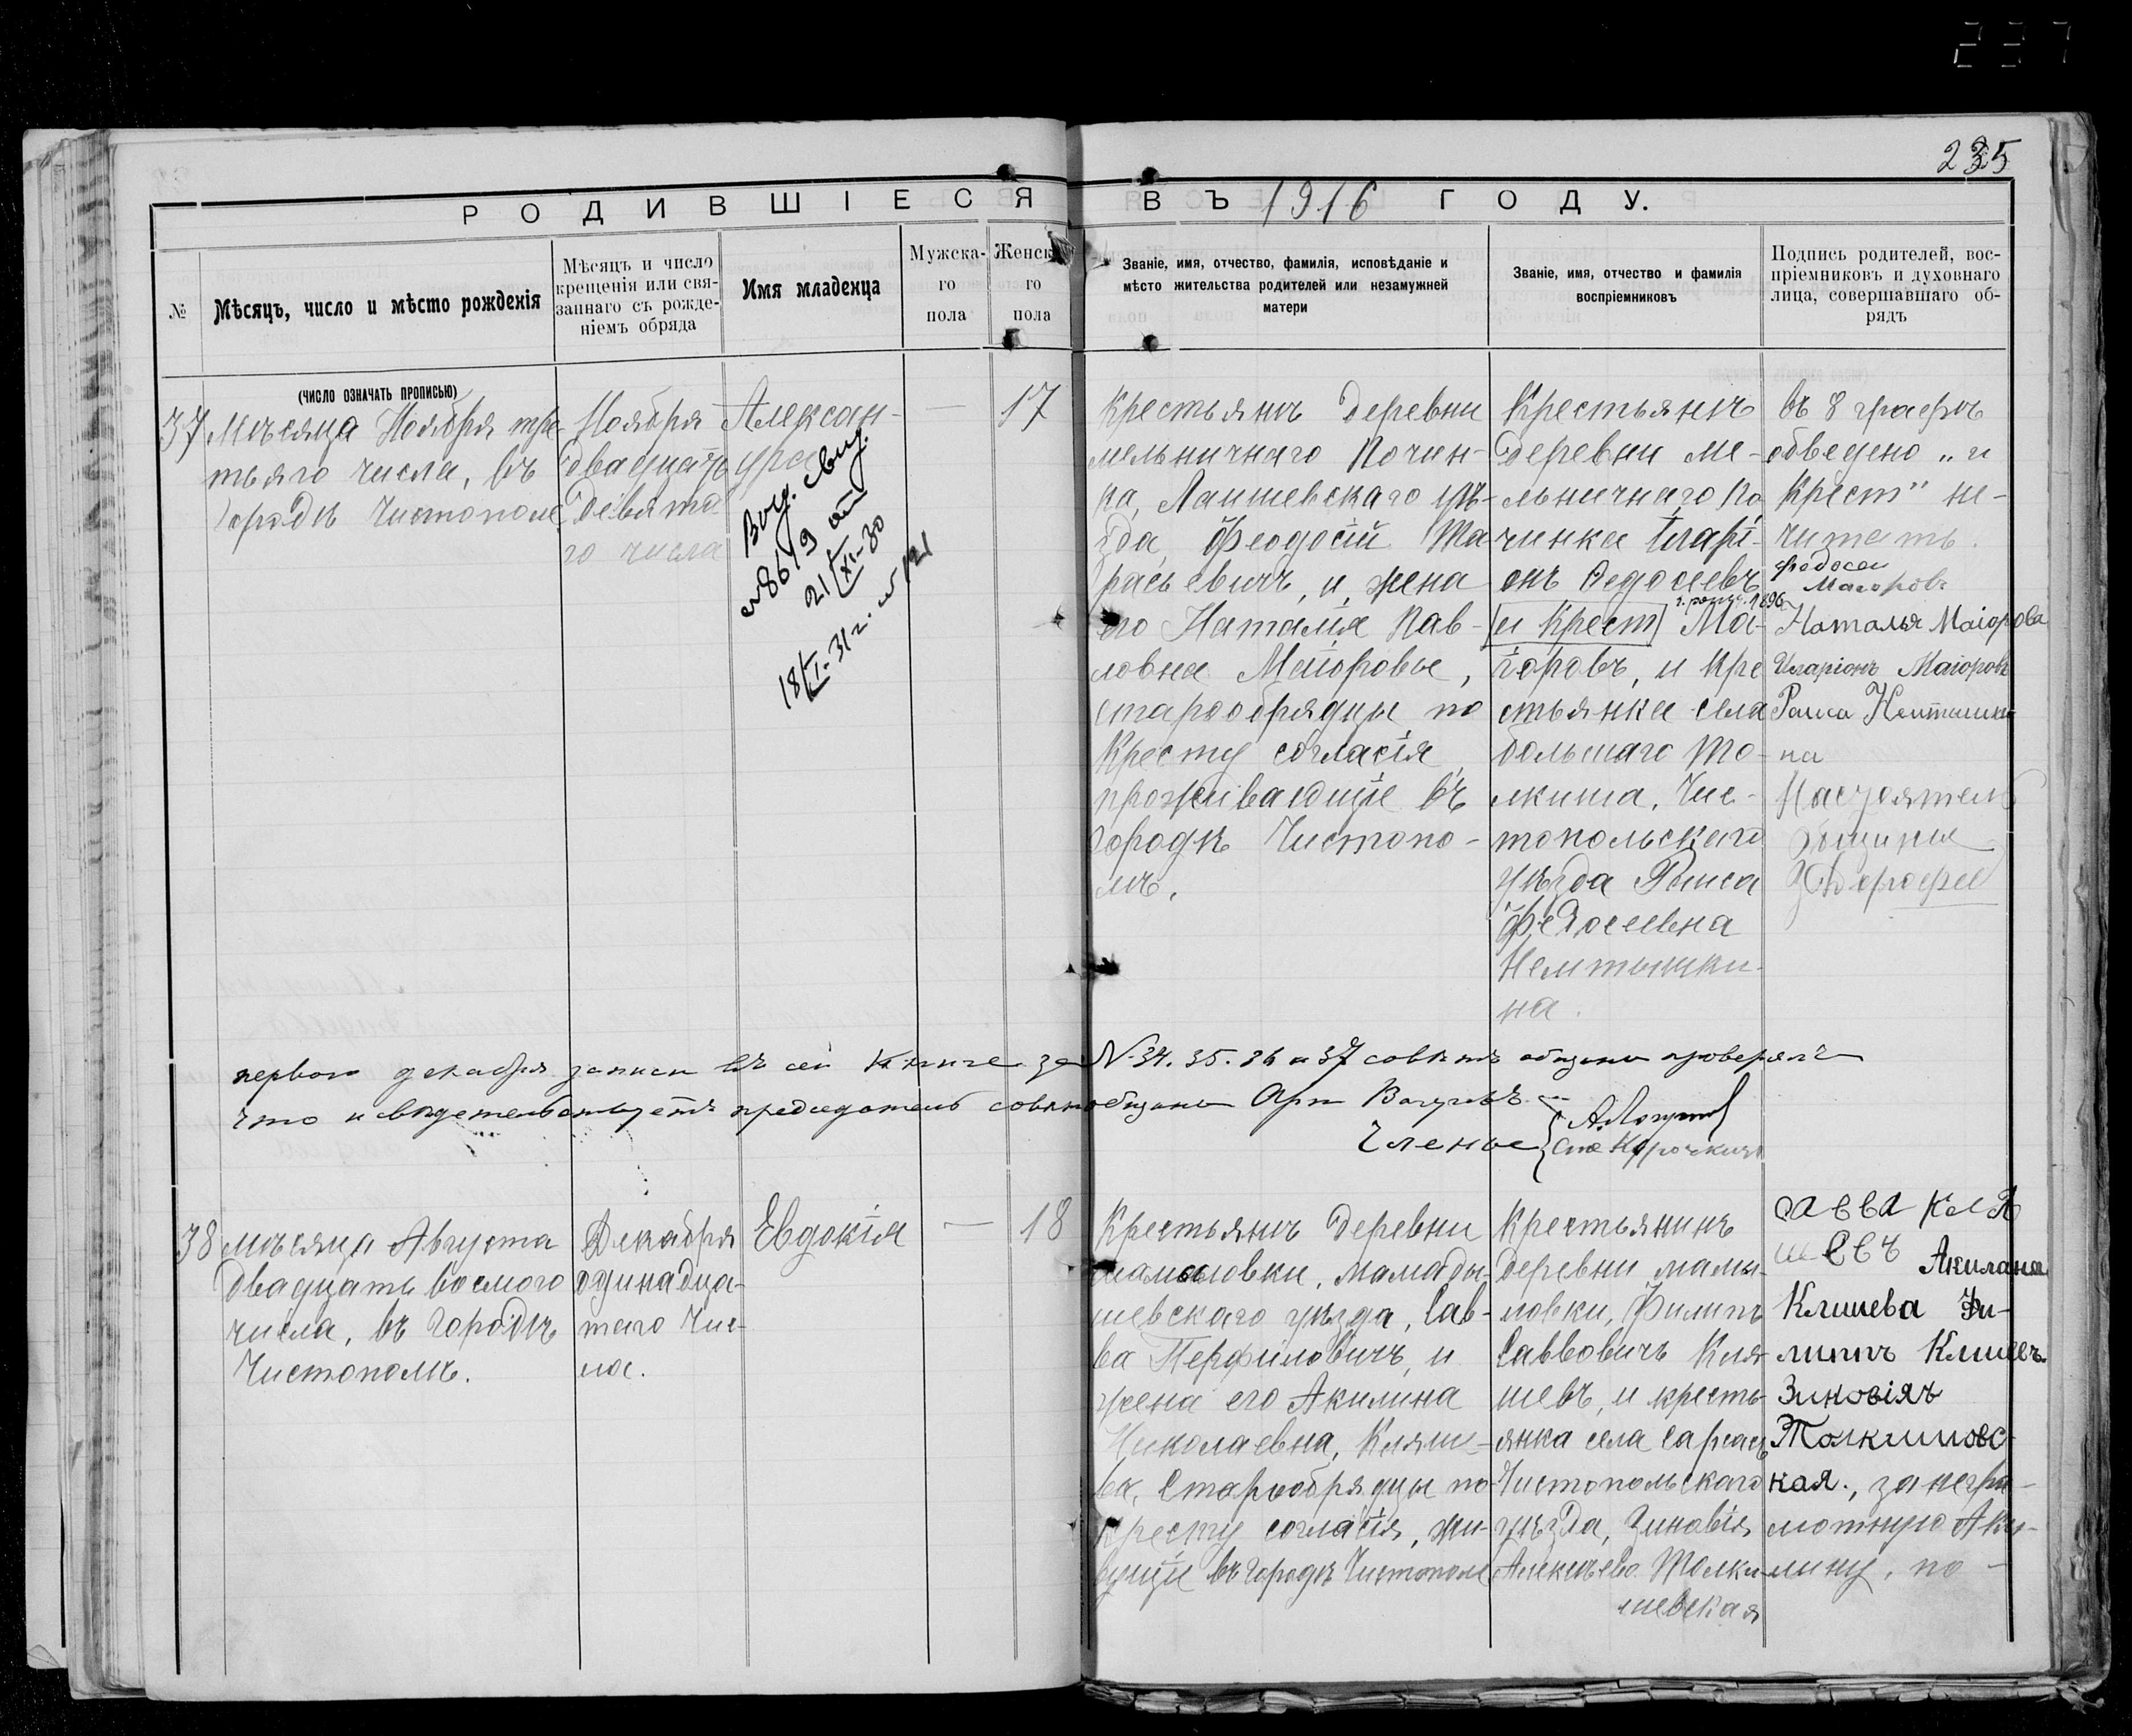 237
235
РОДИВШІЕСЯ ВЪ 1916 ГОДУ.
№
Мѣсяцъ, число и мѣсто рожденія
Мѣсяцъ и число
крещенія или свя-
заннаго съ рожде-
ніемъ обряда
Имя младенца
Мужска-
го
пола
Женска-
го
пола
Званіе, имя, отчество, фамилія, исповѣданіе и
мѣсто жительства родителей или незамужней
матери
Званіе, имя, отчество и фамилія
воспріемниковъ
Подпись родителей, вос-
пріемниковъ и духовнаго
лица, совершавшаго об-
рядъ
(ЧИСЛО ОЗНАЧАТЬ ПРОПИСЬЮ)
37
Мѣсяца Ноября тре-
тьяго числа, въ
городѣ Чистополе
Ноября
двадцать
девята-
го числа
Алексан-
дра
Выд. свид.
№8619 от
21/XI-30
18/I-31г. №121
—
17
Крестьянъ деревни
мельничнаго Почин-
ка, Лаишевскаго уѣ-
зда, Феодосій Та-
расьевичъ, и жена
его Наталія Пав-
ловна Маіоровы,
старообрядцы по
Кресту согласія,
проживающіе въ
городѣ Чистопо-
лѣ.
Крестьянъ
деревни ме-
льничнаго По-
чинка Иларі-
онъ Федосеевъ
г. рожд. 1896
и Крест Ма-
іоровъ, и кре
стьянка села
большаго То-
лкиша, Чис-
топольскаго
уѣзда Раиса
Федосеевна
Кемтышки-
на.
въ 8 графѣ
обведено „и
Крест" не-
читать.
федосеи
Маіоровъ
Наталья Маіорова
Иларіонъ Маіоровъ
Раиса
на
Настоятель
общины
первого декабря записи въ сей книге за № 34. 35. 36 и 37 советъ общины проверялъ
что и свидетельствуетъ председатель совета общины
Члены
38
мѣсяца Августа
двадцать восмого
числа, въ городѣ
Чистополѣ.
Декабря
одинадца-
таго Чис-
ла.
Евдокія
—
18
Крестьянъ деревни
мамыловки, мамады-
шевскаго уѣзда, Сав-
ва Перфиловичъ, и
жена его Акилина
Николаевна, Кляше-
ва, Старообрядцы по-
кресту согласія, жи-
вущіе въ городѣ Чистополе
Крестьянинъ
деревни мамы-
ловки, Филипъ
Саввовичъ Кля-
шевъ, и кресть-
янка села Сарсасъ
Чистопольскаго
уѣзда, Зиновія
Алексѣево Толки-
шевская
САВВА КЛЯ
шЕВЪ Акилана
Клишева Фи-
липпъ Клишевъ
Зиновіяъ
Толкишовс-
кая., за негра-
мотную Аки-
лину, по-